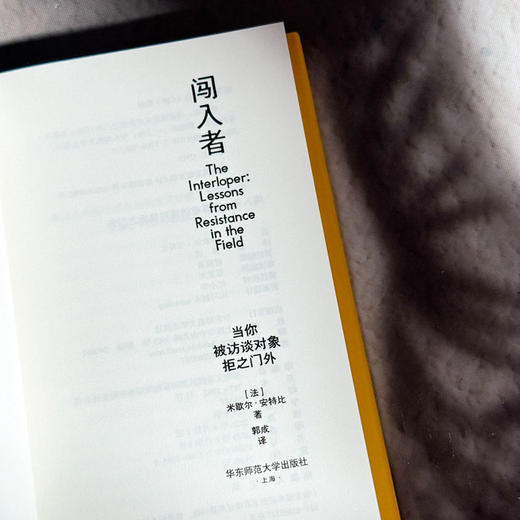 闯入者
The
Interloper:
Lessons
from
Resistance
in the
Field
当你
被访谈对象
拒之门外
［法］
米歇尔·安特比
著
郭成
译
华东师范大学出版社
·上海·